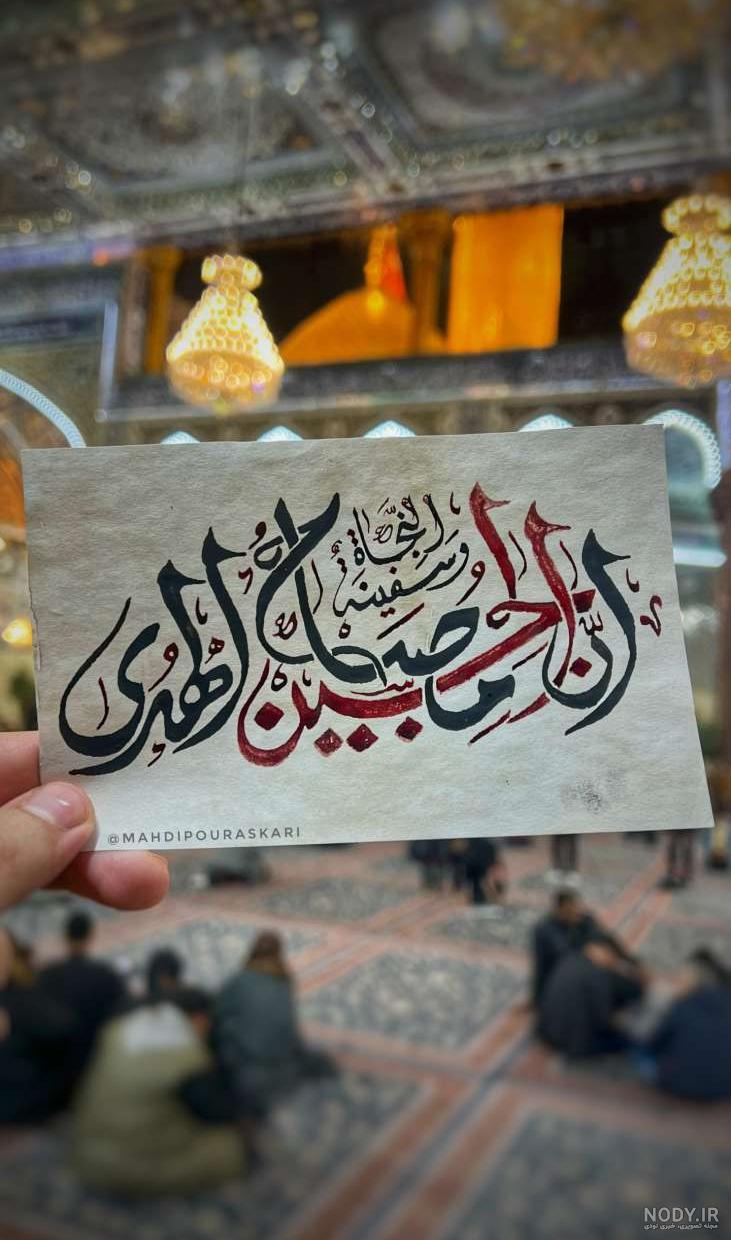 إنّ الحسين مصباح الهدى
وسفينة النّجاة
@MAHDIPOURASKARI
NODY.IR
مجله تصویری، خبری نودی